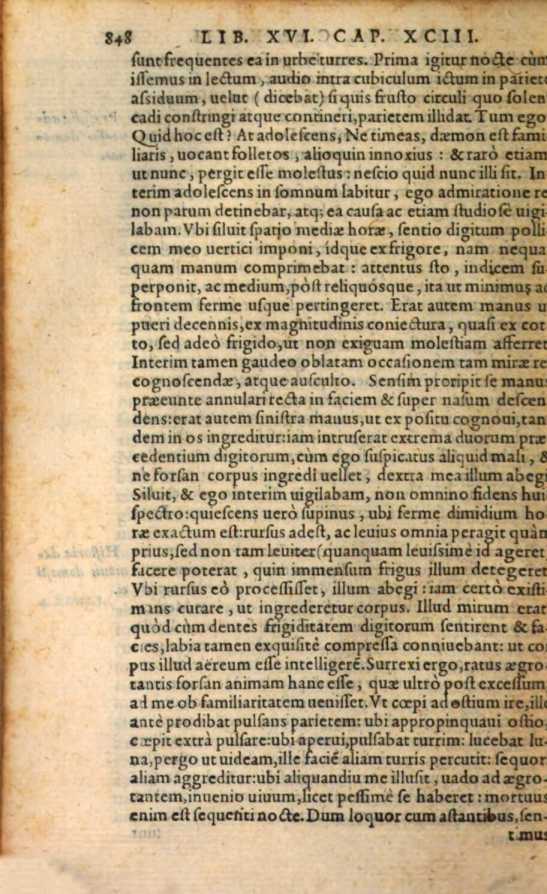 848 LIB. XVI. CAP. XCIII.
sunt frequentes ea in urbe turres. Prima igitur nocte cùm
issemus in lectum, audio intra cubiculum ictum in pariete
assiduum, uelut (dicebat) si quis frusto circuli quo solen
cadi constringi atque contineri, parietem illidat. Tum ego
Quid hoc est? At adolescens, Ne timeas, dæmon est fami
liaris, uocant folletos, alioquin innoxius: & rarò etiam
ut nunc, pergit esse molestus: nescio quid nunc illi sit. In
terim adolescens in somnum labitur, ego admiratione re
non parum detinebar, atq; ea causa ac etiam studiosè uigi
labam. Vbi siluit spatio mediæ horæ, sentio digitum polli
cem meo uertici imponi, idque ex frigore, nam nequa
quam manum comprimebat: attentus sto, indicem su
perponit, ac medium, pòst reliquósque, ita ut minimus ad
frontem ferme usque pertingeret. Erat autem manus u
pueri decennis, ex magnitudinis coniectura, quasi ex cot
to, sed adeò frigido, ut non exiguam molestiam afferret
Interim tamen gaudeo oblatam occasionem tam miræ re
cognoscendæ, atque ausculto. Sensim proripit se manus
præeunte annulari recta in faciem & super nasum descen
dens: erat autem sinistra manus, ut ex positu cognoui, tan
dem in os ingreditur: iam intruserat extrema duorum præ
cedentium digitorum, cùm ego suspicatus aliquid mali, &
ne forsan corpus ingredi uellet, dextra mea illum abegi
Siluit, & ego interim uigilabam, non omnino fidens hui
spectro: quiescens uerò supinus, ubi ferme dimidium ho
ræ exactum est: rursus adest, ac leuius omnia peragit quàm
prius, sed non tam leuiter (quanquam leuissimè id ageret
facere poterat, quin immensum frigus illum detegeret
Vbi rursus eò processisset, illum abegi: iam certò existi
mans curare, ut ingrederetur corpus. Illud mirum erat
quòd cùm dentes frigiditatem digitorum sentirent & fa-
cies, labia tamen exquisitè compressa conniuebant: ut cor
pus illud aëreum esse intelligerē. Surrexi ergo, ratus ægro
tantis forsan animam hanc esse, quæ ultrò post excessum
ad me ob familiaritatem uenisset. Vt cœpi ad ostium ire, ille
antè prodibat pulsans parietem: ubi appropinquaui ostio
cœpit extrà pulsare: ubi aperui, pulsabat turrim: lucebat lu-
na, pergo ut uideam, ille faciē aliam turris percutit: sequor
aliam aggreditur: ubi aliquandiu me illusit, uado ad ægro-
tantem, inuenio uiuum, licet pessimè se haberet: mortuus
enim est sequenti nocte. Dum loquor cum astantibus, sen-
timus